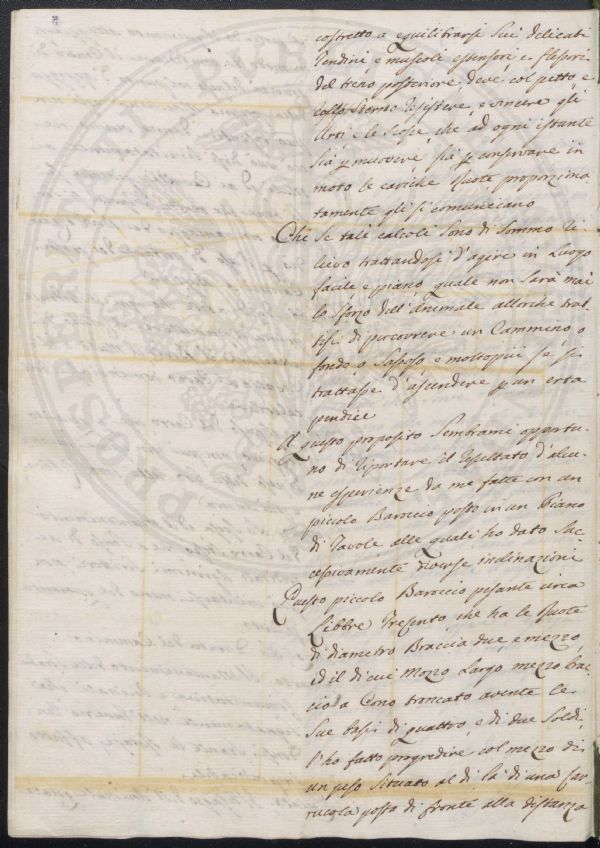 costretto a equilibrarsi sui delicati
Tendini, e muscoli estensori e flessori
del treno posteriore, deve col petto, e
collo sterno resistere, e vincere gli
Urti, le scosse, che ad ogni istante
sia p muovere, sia p conservare in
moto le cariche Ruote, proporziona
tamente gli si comunicano
Che se tali calcoli sono di sommo ri
lievo trattandosi d'agire in Luogo
facile e piano quale non sarà mai
lo sforzo dell'Animale allorche trat
tisi di percorrere un Cammino, o
fondo, o Sassoso, e moltopiù se si
trattasse d'ascendere p un'erta
pendice
A questo proposito Sembrami opportu-
no di riportare il resultato d'alcu-
ne esperienze da me fatte con un
piccolo Baroccio posto in un Piano
di Tavole alle quali ho dato suc
cessivamente diverse inclinazioni
Questo piccolo Baroccio pesante circa
Libbre Trecento, che ha le Ruote
di diametro Braccia due, e mezzo,
ed il di cui Mozzo Largo, mezzo brac
cio, a Cono troncato avente le
sue basi di quattro, e di due Soldi,
l'ho fatto progredire col mezzo di
un peso situato al di là di una car
rucola posta di fronte alla distanza